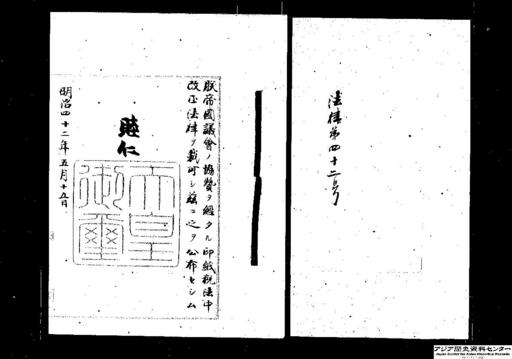 法律第四十二号
朕帝國議會ノ協贊ヲ經タル印紙税法中
改正法律ヲ裁可シ茲ニ之ヲ公布セシム
睦仁
天皇御璽
明治四十二年五月十五日
アジア歴史資料センター
Japan Center for Asian Historical Records